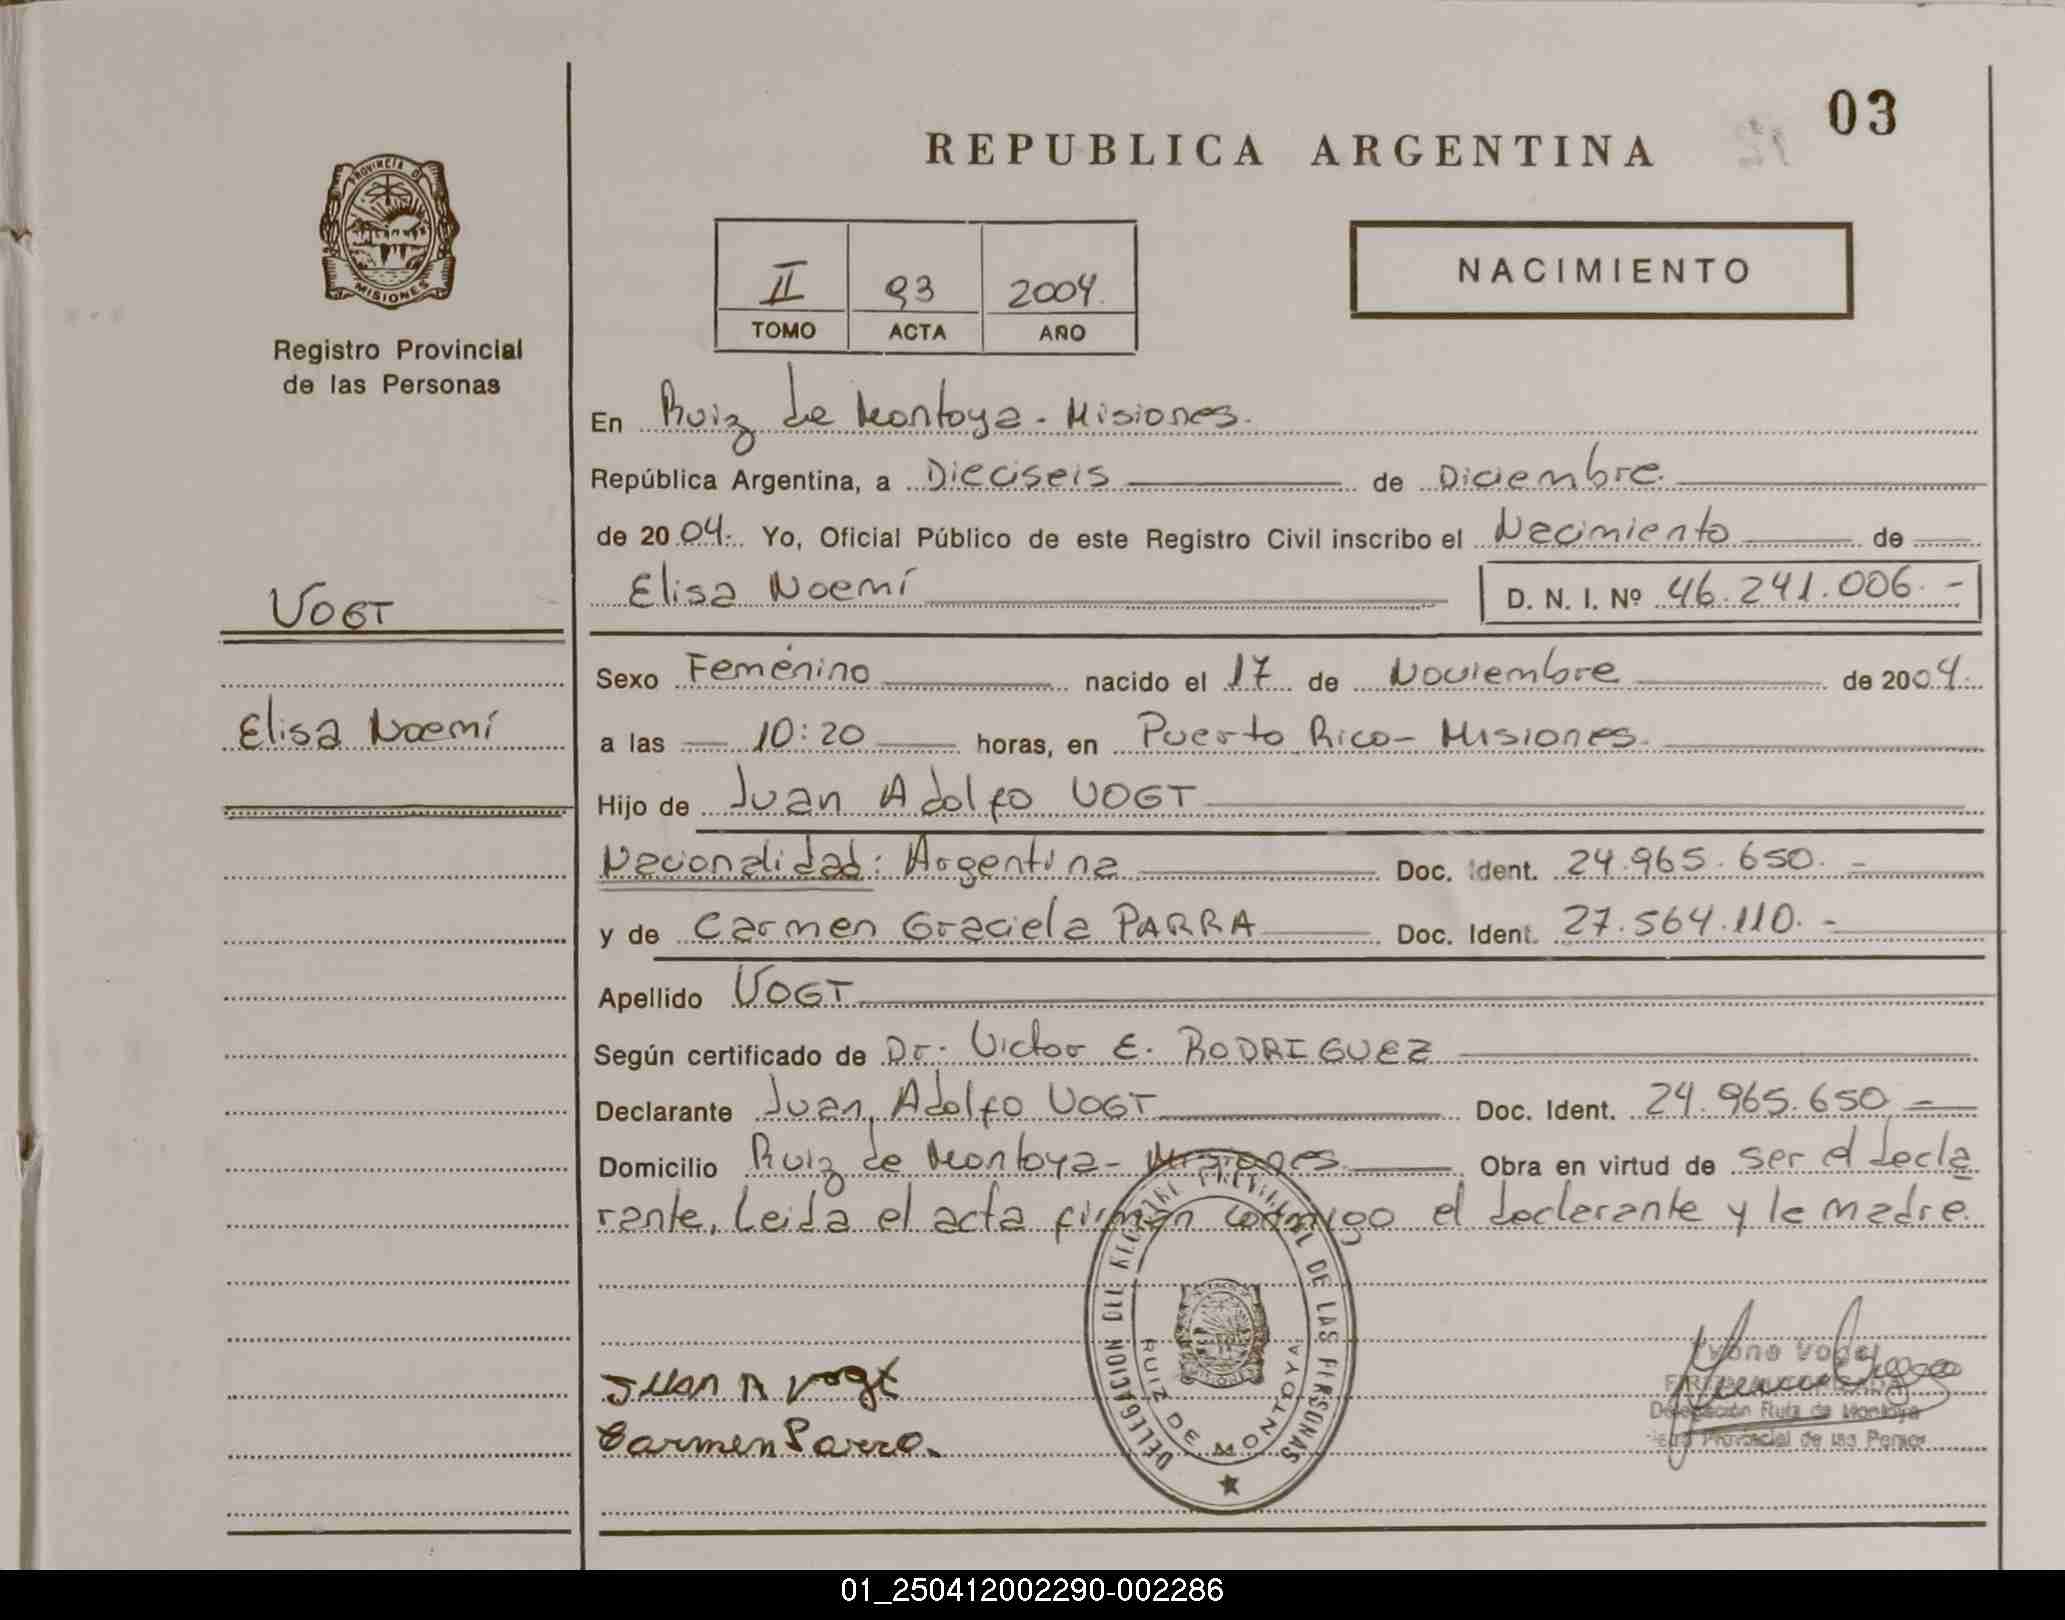 03
REPUBLICA ARGENTINA
PROVINCIA D
MISIONES
Registro Provincial
de las Personas
II 93 2004
TOMO ACTA AÑO
NACIMIENTO
En Ruiz de Montoya - Misiones.
República Argentina, a Dieciseis de Diciembre
de 2004. Yo, Oficial Público de este Registro Civil inscribo el Nacimiento de
Elisa Noemí D. N. I. Nº 46.241.006.-
VOGT
Elisa Noemí
Sexo Femenino nacido el 17 de Noviembre de 2004.
a las 10:20 horas, en Puerto Rico - Misiones.
Hijo de Juan Adolfo VOGT
Nacionalidad: Argentina Doc. Ident. 24.965.650.-
y de Carmen Graciela PARRA Doc. Ident. 27.564.110.-
Apellido VOGT
Según certificado de Dr. Victor E. RODRIGUEZ
Declarante Juan Adolfo VOGT Doc. Ident. 24.965.650.-
Domicilio Ruiz de Montoya - Misiones Obra en virtud de ser el decla
rante, Leida el acta firman conmigo el declarante y la madre.
DELEGACION DEL REGISTRO PROVINCIAL DE LAS PERSONAS
RUIZ DE MONTOYA
Juan A Vogt
Carmen Parra.
Delegación Ruiz de Montoya
Provincial de las Person
01_250412002290-002286